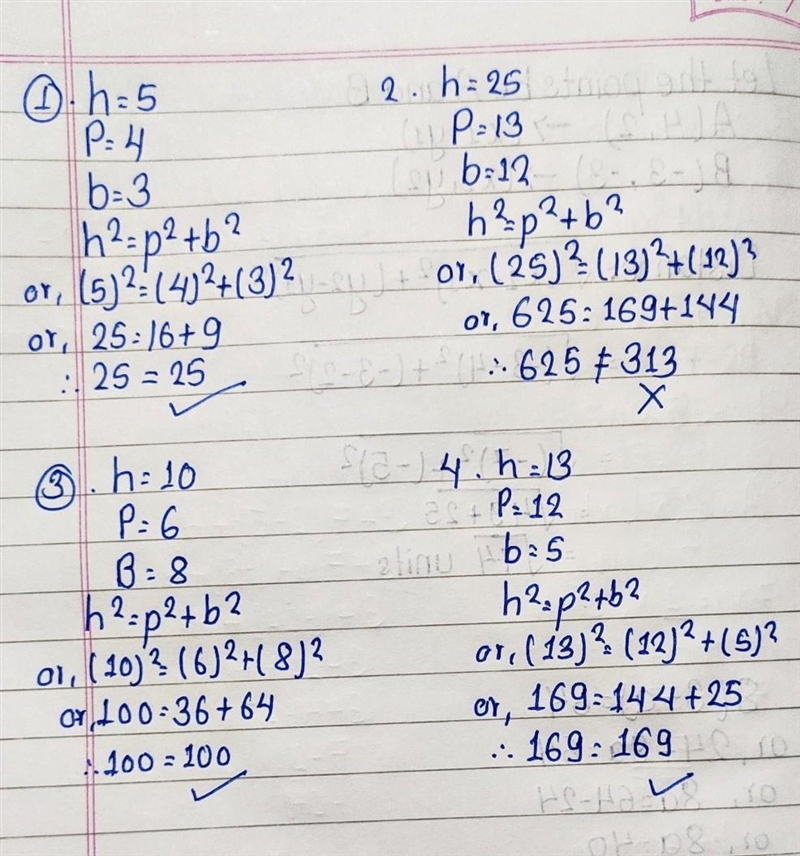 ①. h=5
P=4
b=3
h²=p²+b²
or, (5)²=(4)²+(3)²
or, 25=16+9
∴ 25=25 ✓
2. h=25
P=13
b=12
h²=p²+b²
or, (25)²=(13)²+(12)²
or, 625=169+144
∴ 625≠313
X
③. h=10
P=6
B=8
h²=p²+b²
or, (10)²=(6)²+(8)²
or, 100=36+64
∴ 100=100 ✓
4. h=13
P=12
b=5
h²=p²+b²
or, (13)²=(12)²+(5)²
or, 169=144+25
∴ 169=169 ✓